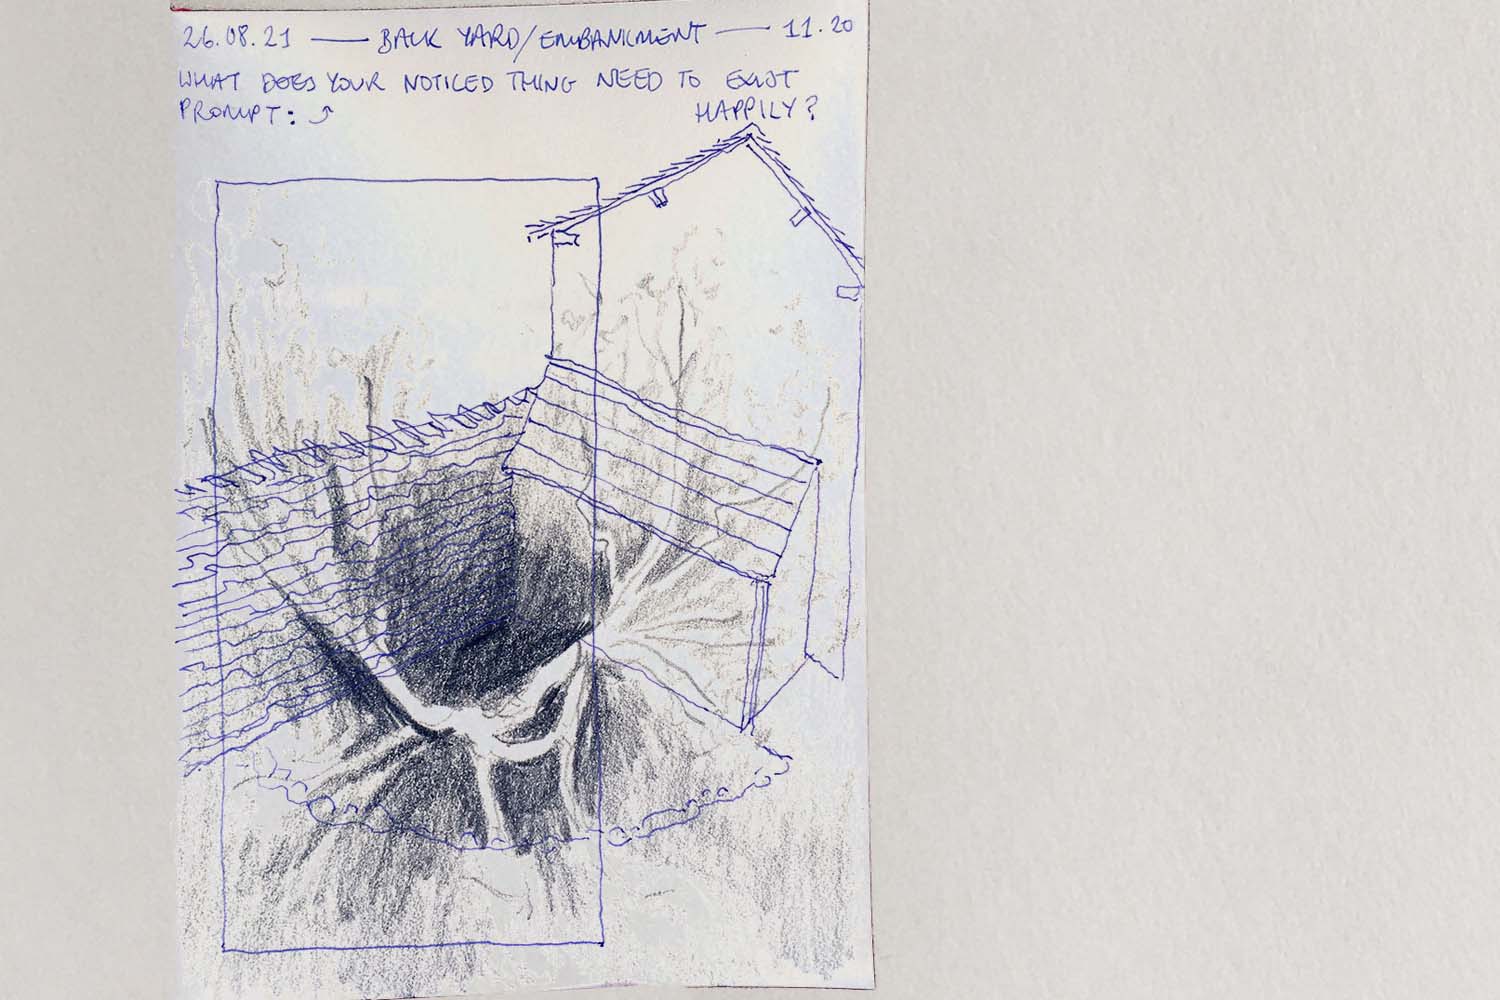 26.08.21 — BACK YARD/EMBANKMENT — 11.20
WHAT DOES YOUR NOTICED THING NEED TO EXIST
PROMPT: ⤴ HAPPILY?